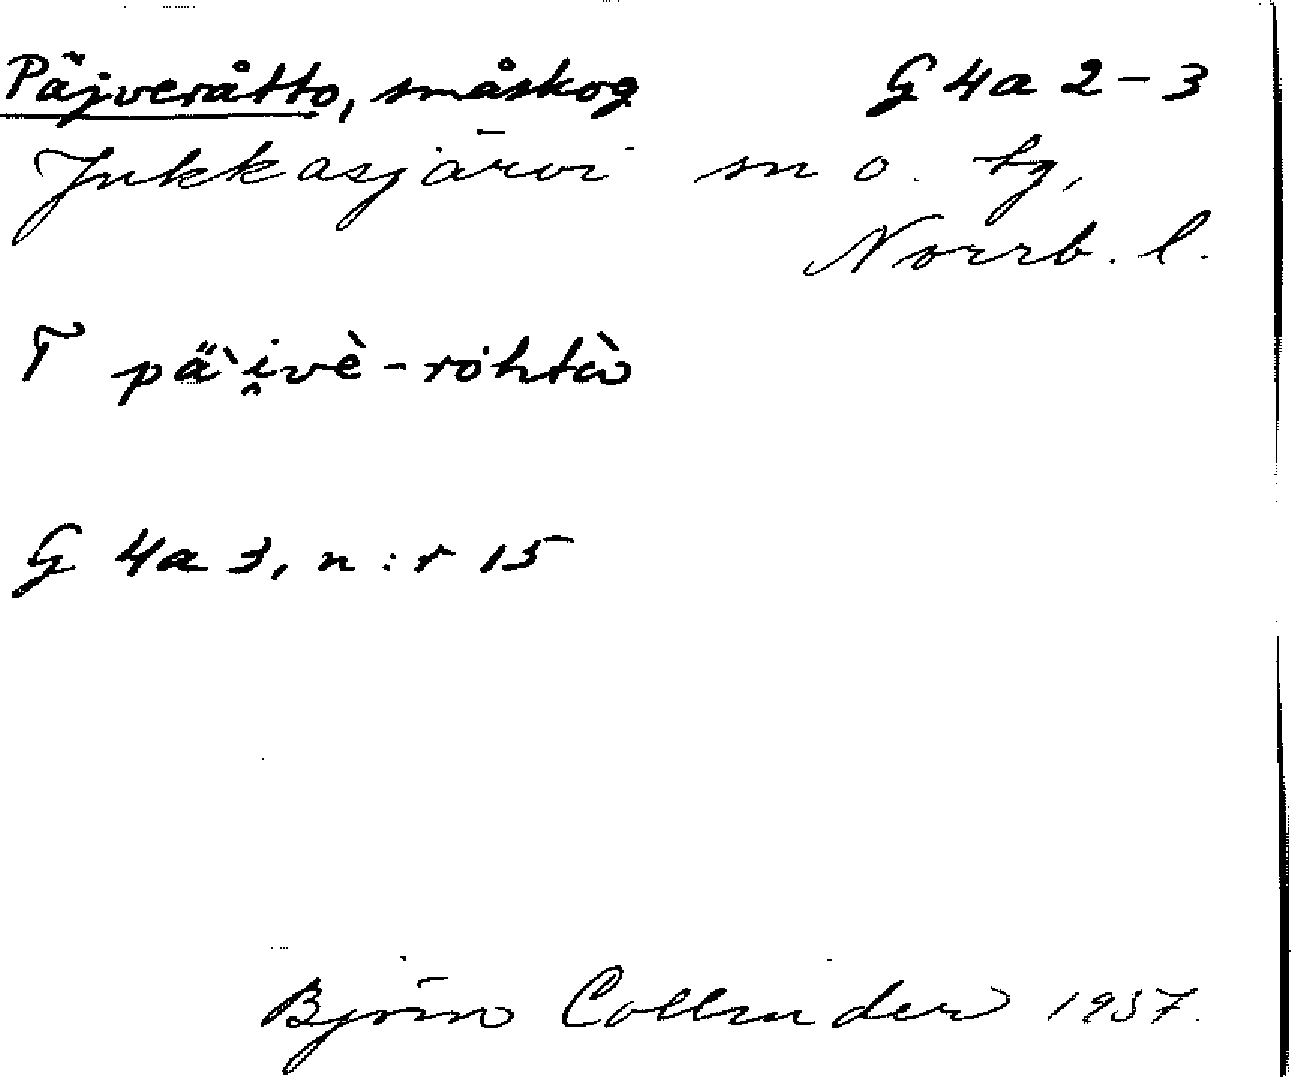 Päjveråtto, småskog G 4a 2-3
Jukkasjärvi sn o. tg,
Norrb. l.
T pä`i̯vè-róhtà
G 4a 3, n:r 15
Björn Collinder 1957.